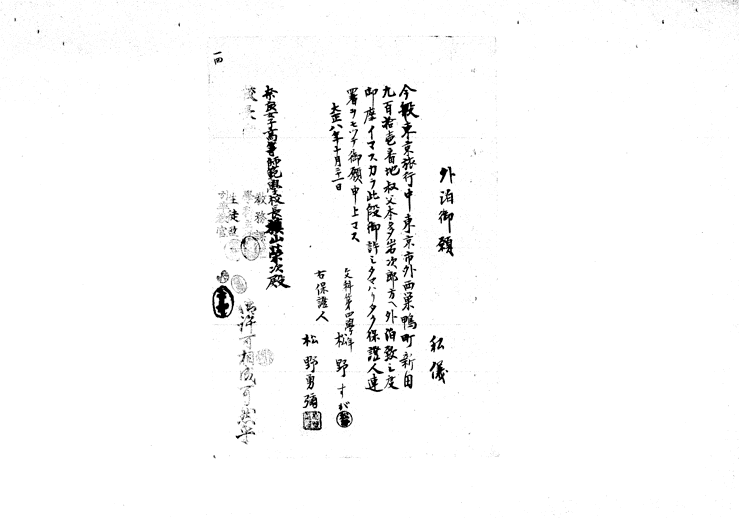 外泊御願
私儀
今般東京旅行中東京市外西巣鴨町新田
九百拾壱番地叔父本多岩次郎方ヘ外泊致シ度
御座イマスカラ此段御許シタマハリタク保證人連
署ヲモツテ御願申上マス
大正八年十月三十一日
文科第四學年
松野すが
右保證人
松野勇彌
奈良女子高等師範學校長槇山榮次殿
校長
教務課
生徒
御許可相成可然乎
一四